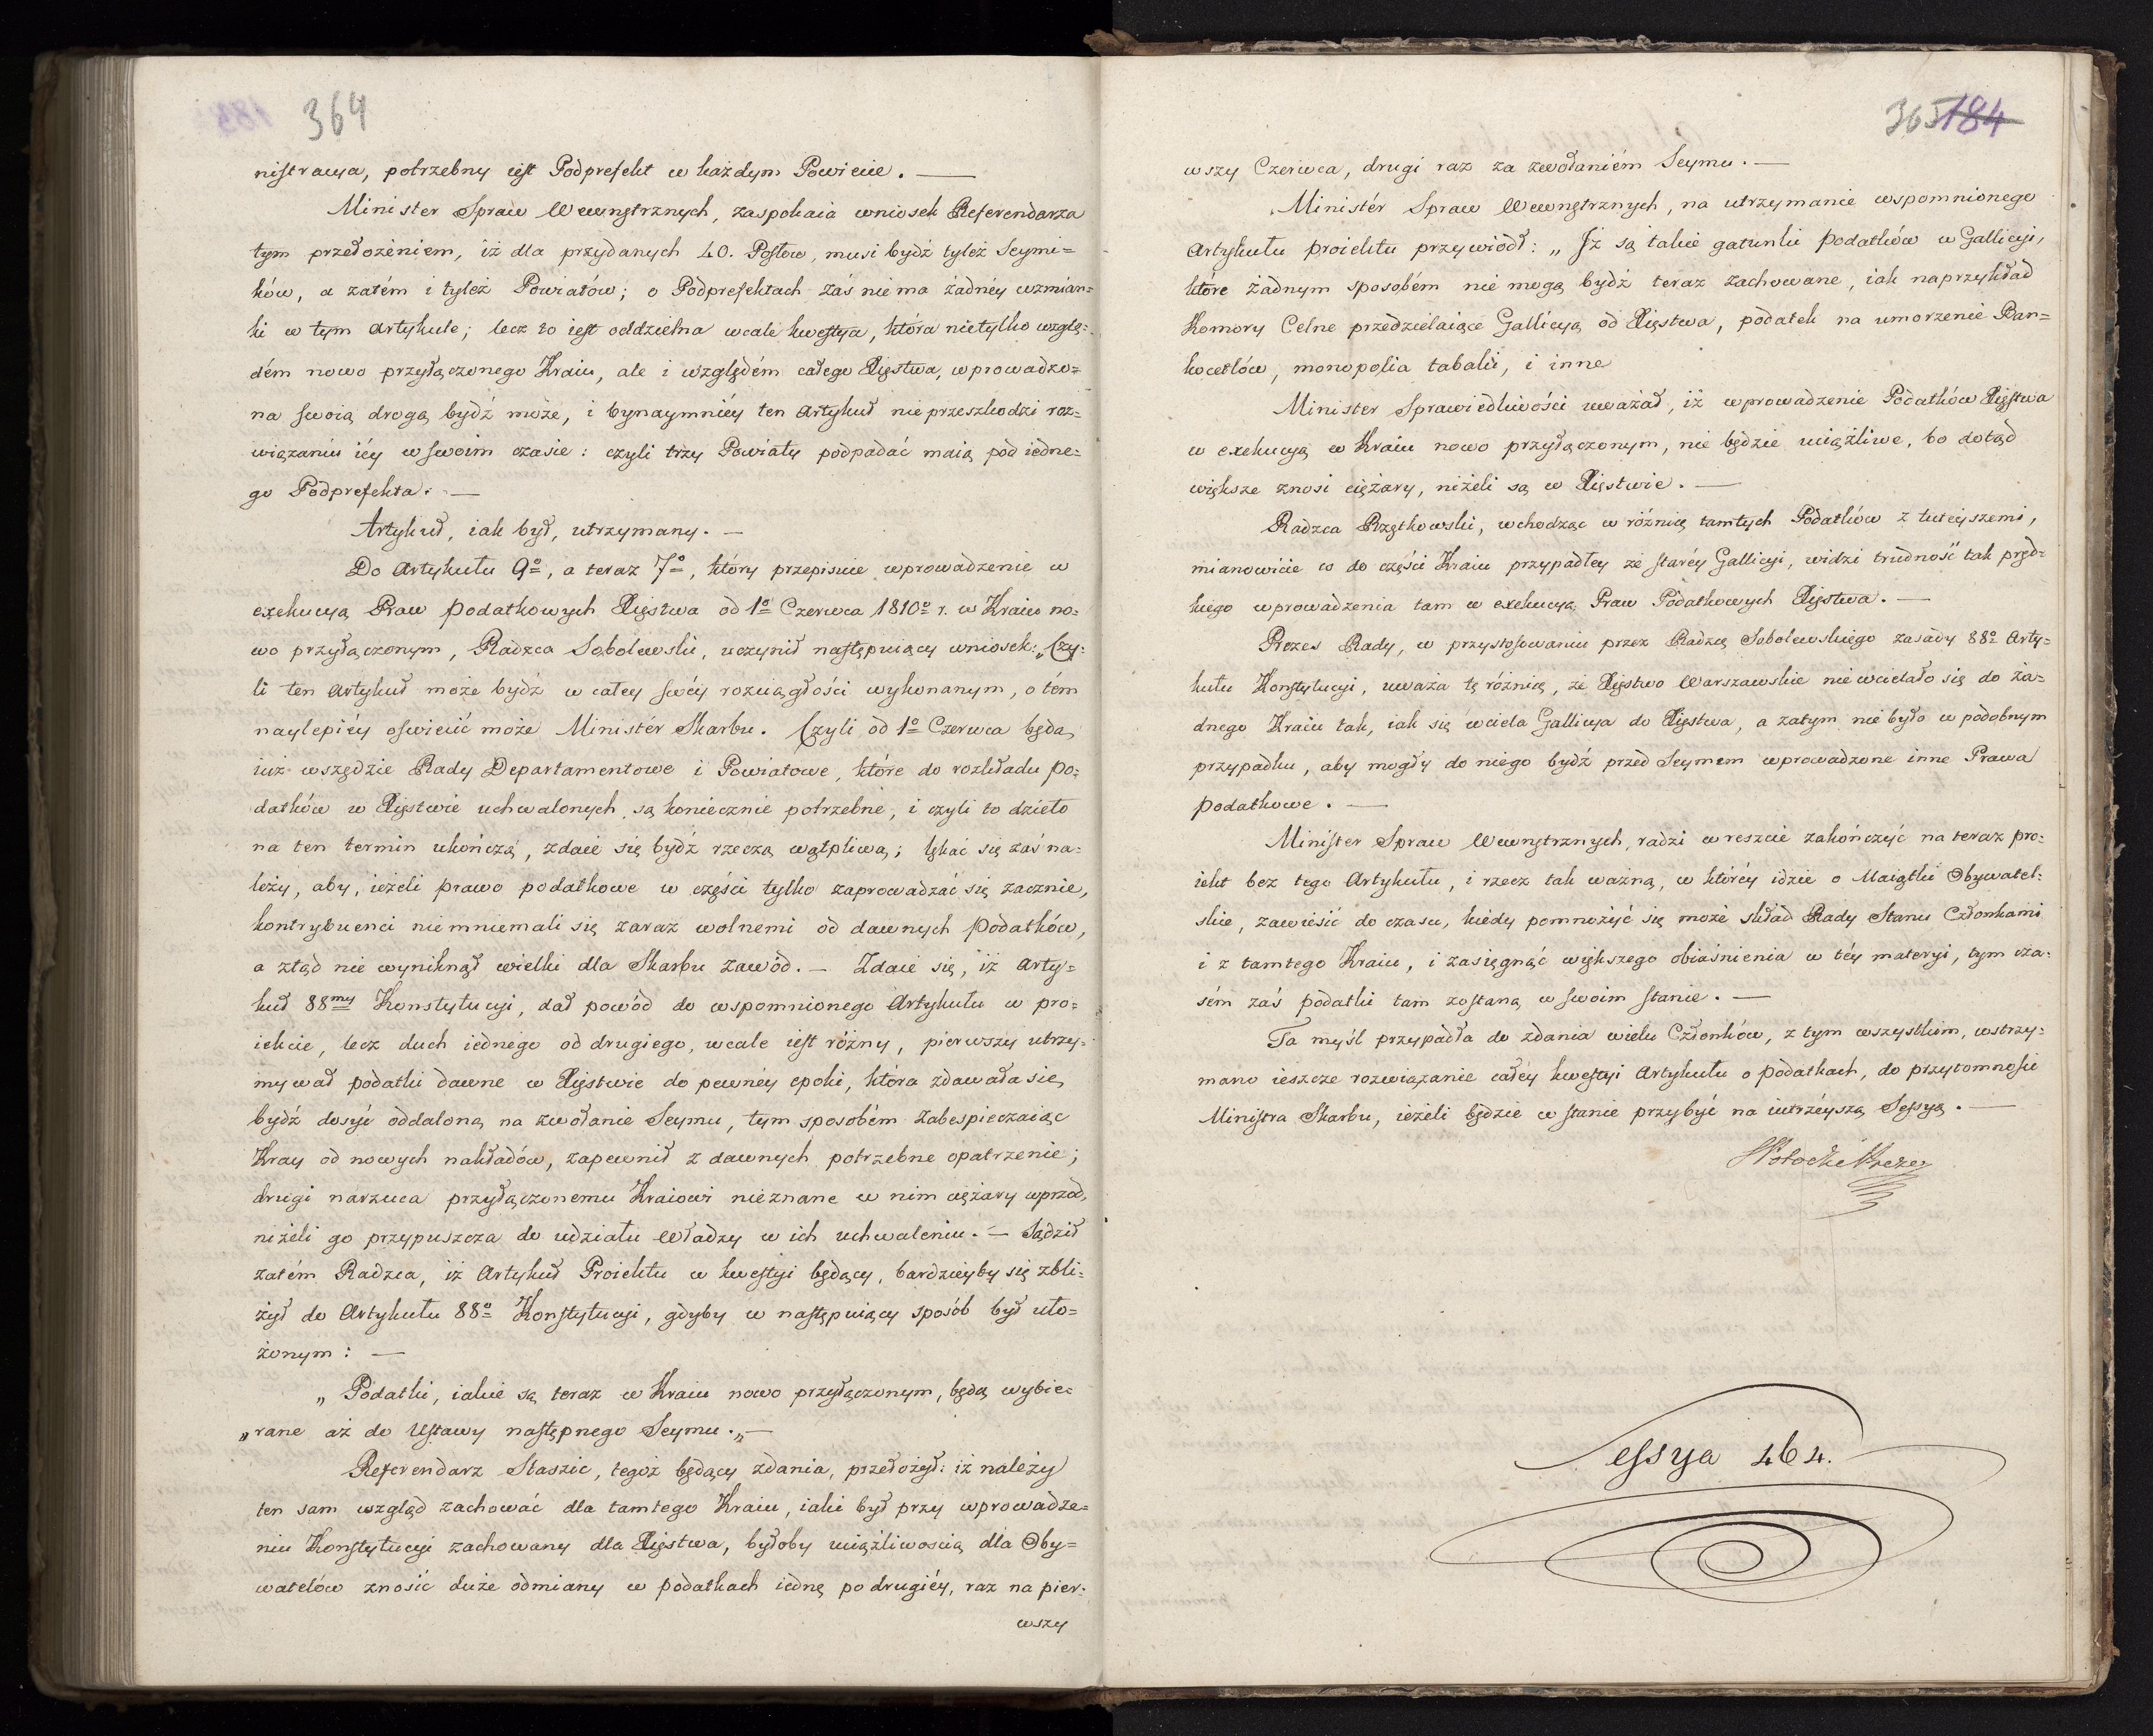 364
nistracya, potrzebny iest Podprefekt w każdym Powiecie. —
Minister Spraw Wewnętrznych, zaspokaia wniosek Referendarza
tym przełożeniem, iż dla przydanych 40. Posłow, musi bydź tyleż Seymi=
ków, a zatém i tyleż Powiatów; o Podprefektach zaś nie ma żadnéy wzmian=
ki w tym Artykule; lecz to iest oddzielna wcale kwestya, która nietylko wzglę=
dém nowo przyłączonego Kraiu, ale i względém całego Xięstwa, wprowadzo=
na swoią drogą bydź może, i bynaymniéy ten Artykuł nie przeszkodzi roz=
wiązaniu iéy w swoim czasie: czyli trzy Powiaty podpadać maią pod iedne=
go Podprefekta. —
Artykuł, iak był, utrzymany. —
Do Artykułu 9º, a teraz 7º, który przepisuie wprowadzenie w
exekucyą Praw podatkowych Xięstwa od 1º Czerwca 1810º r. w Kraiu no=
wo przyłączonym, Radzca Sobolewski, uczynił następuiący wniosek: „Czy=
li ten Artykuł może bydź w całey swéy rozciągłości wykonanym, o tém
naylepiéy oświecić może Ministér Skarbu. Czyli od 1º Czerwca będą
iuż wszędzie Rady Departamentowe i Powiatowe, które do rozkładu po=
datków w Xięstwie uchwalonych, są koniecznie potrzebne, i czyli to dzieło
na ten termin ukończą, zdaie się bydź rzeczą wątpliwą; lękać się zaś na=
leży, aby, ieżeli prawo podatkowe w części tylko zaprowadzać się zacznie,
kontrybuenci nie mniemali się zaraz wolnemi od dawnych podatków,
a ztąd nie wyniknął wielki dla Skarbu zawód. — Zdaie się, iż Arty=
kuł 88my Konstytucyi, dał powód do wspomnionego Artykułu w pro=
iekcie, lecz duch iednego od drugiego, wcale iest różny, pierwszy utrzy=
mywał podatki dawne w Xięstwie do pewnéy epoki, która zdawała się
bydź dosyć oddaloną na zwołanie Seymu, tym sposobém zabespieczaiąc
Kray od nowych nakładów, zapewnił z dawnych potrzebne opatrzenie;
drugi narzuca przyłączonemu Kraiowi nieznane w nim ciężary wprzód,
niżeli go przypuszcza do udziału Władzy w ich uchwaleniu. — Sądził
zatém Radzca, iż Artykuł Proiektu w kwestyi będący, bardziéyby się zbli=
żył do Artykułu 88º Konstytucyi, gdyby w następuiący sposób był uło=
żonym: —
„Podatki, iakie są teraz w Kraiu nowo przyłączonym, będą wybie=
„rane aż do Ustawy następnego Seymu.„ —
Referendarz Staszic, tegoż będący zdania, przełożył: iż należy
ten sam wzgląd zachować dla tamtego Kraiu, iaki był przy wprowadze=
niu Konstytucyi zachowany dla Xięstwa, byłoby uciążliwością dla Oby=
watelów znosić duże odmiany w podatkach iedną po drugiéy, raz na pier=
wszy
365 184
wszy Czerwca, drugi raz za zwołaniém Seymu. —
Ministér Spraw Wewnętrznych, na utrzymanie wspomnionego
Artykułu proiektu przywiódł: „Iż są takie gatunki podatków w Gallicyi,
które żadnym sposobém nie mogą bydź teraz zachowane, iak naprzykład
Komory Celne przedzielaiące Gallicyą od Xięstwa, podatek na umorzenie Ban=
kocetlów, monopolia tabaki, i inne
Minister Sprawiedliwości uważał, iż wprowadzenie Podatków Xięstwa
w exekucyą w Kraiu nowo przyłączonym, nie będzie uciążliwe, bo dotąd
większe znosi ciężary, niżeli są w Xięstwie. —
Radzca Rzętkowski, wchodząc w różnicę tamtych Podatków z tuteyszemi,
mianowicie co do części Kraiu przypadłey ze staréy Gallicyi, widzi trudność tak pręd=
kiego wprowadzenia tam w exekucyą Praw Podatkowych Xięstwa. —
Prezes Rady, w przystosowaniu przez Radzcę Sobolewskiego zasady 88º Arty=
kułu Konstytucyi, uważa tę różnicę, że Xięstwo Warszawskie nie wcielało się do ża=
dnego Kraiu tak, iak się wciela Gallicya do Xięstwa, a zatym nie było w podobnym
przypadku, aby mogły do niego bydź przed Seymem wprowadzone inne Prawa
podatkowe. —
Minister Spraw Wewnętrznych, radzi wreszcie zakończyć na teraz pro=
iekt bez tego Artykułu, i rzecz tak ważną, w któréy idzie o Maiątki Obywatel=
skie, zawiesić do czasu, kiedy pomnożyć się może skład Rady Stanu Członkami
i z tamtego Kraiu, i zasięgnąć większego obiaśnienia w téy materyi, tym cza=
sém zaś podatki tam zostaną w swoim stanie. —
Ta myśl przypadła do zdania wielu Członków, z tym wszystkim, wstrzy=
mano ieszcze rozwiązanie całéy kwestyi Artykułu o podatkach, do przytomności
Ministra Skarbu, ieżeli będzie w stanie przybyć na iutrzéyszą Sessyą. —
SPotocki Prezes
Sessya 464.